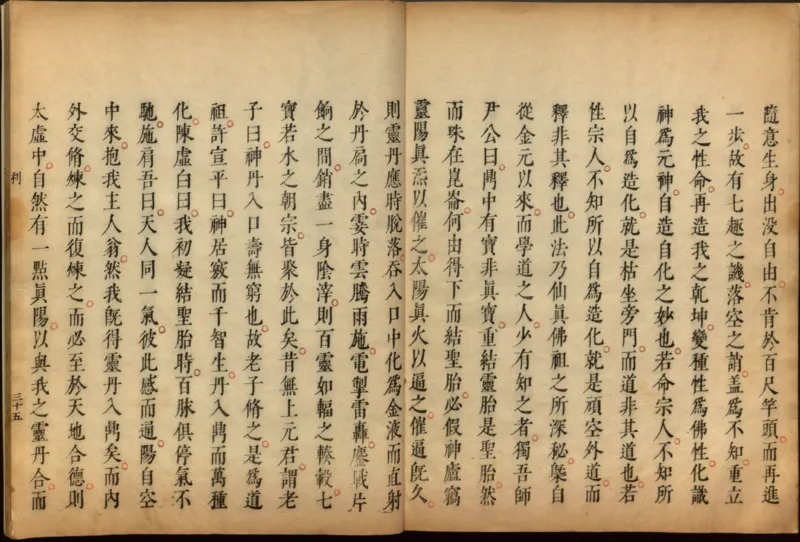 隨意生身出没自由不肯於百尺竿頭而再進
一歩故有七趣之譏落空之誚盖爲不知重立
我之性命再造我之乾坤變種性爲佛性化識
神爲元神自造自化之妙也若命宗人不知所
以自爲造化就是枯坐旁門而道非其道也若
性宗人不知所以自爲造化就是頑空外道而
釋非其釋也此法乃仙眞佛祖之所深秘槩自
從金元以來而學道之人少有知之者獨吾師
尹公曰鼎中有寶非眞寶重結靈胎是聖胎然
而珠在崑崙何由得下而結聖胎必假神廬竊
靈陽眞炁以催之太陽眞火以逼之催逼旣久
則靈丹應時脫落吞入口中化爲金液而直射
於丹扃之内霎時雲騰雨施電掣雷轟鏖戰片
餉之間銷盡一身陰滓則百靈如輻之輳轂七
寶若水之朝宗皆聚於此矣昔無上元君謂老
子曰神丹入口壽無窮也故老子脩之是爲道
祖許宣平曰神居竅而千智生丹入鼎而萬種
化陳虛白曰我初凝結聖胎時百脉俱停氣不
馳施肩吾曰天人同一氣彼此感而通陽自空
中來抱我主人翁然我旣得靈丹入鼎矣而内
外交脩煉之而復煉之而必至於天地合德則
太虛中自然有一點眞陽以與我之靈丹合而
利
三十五